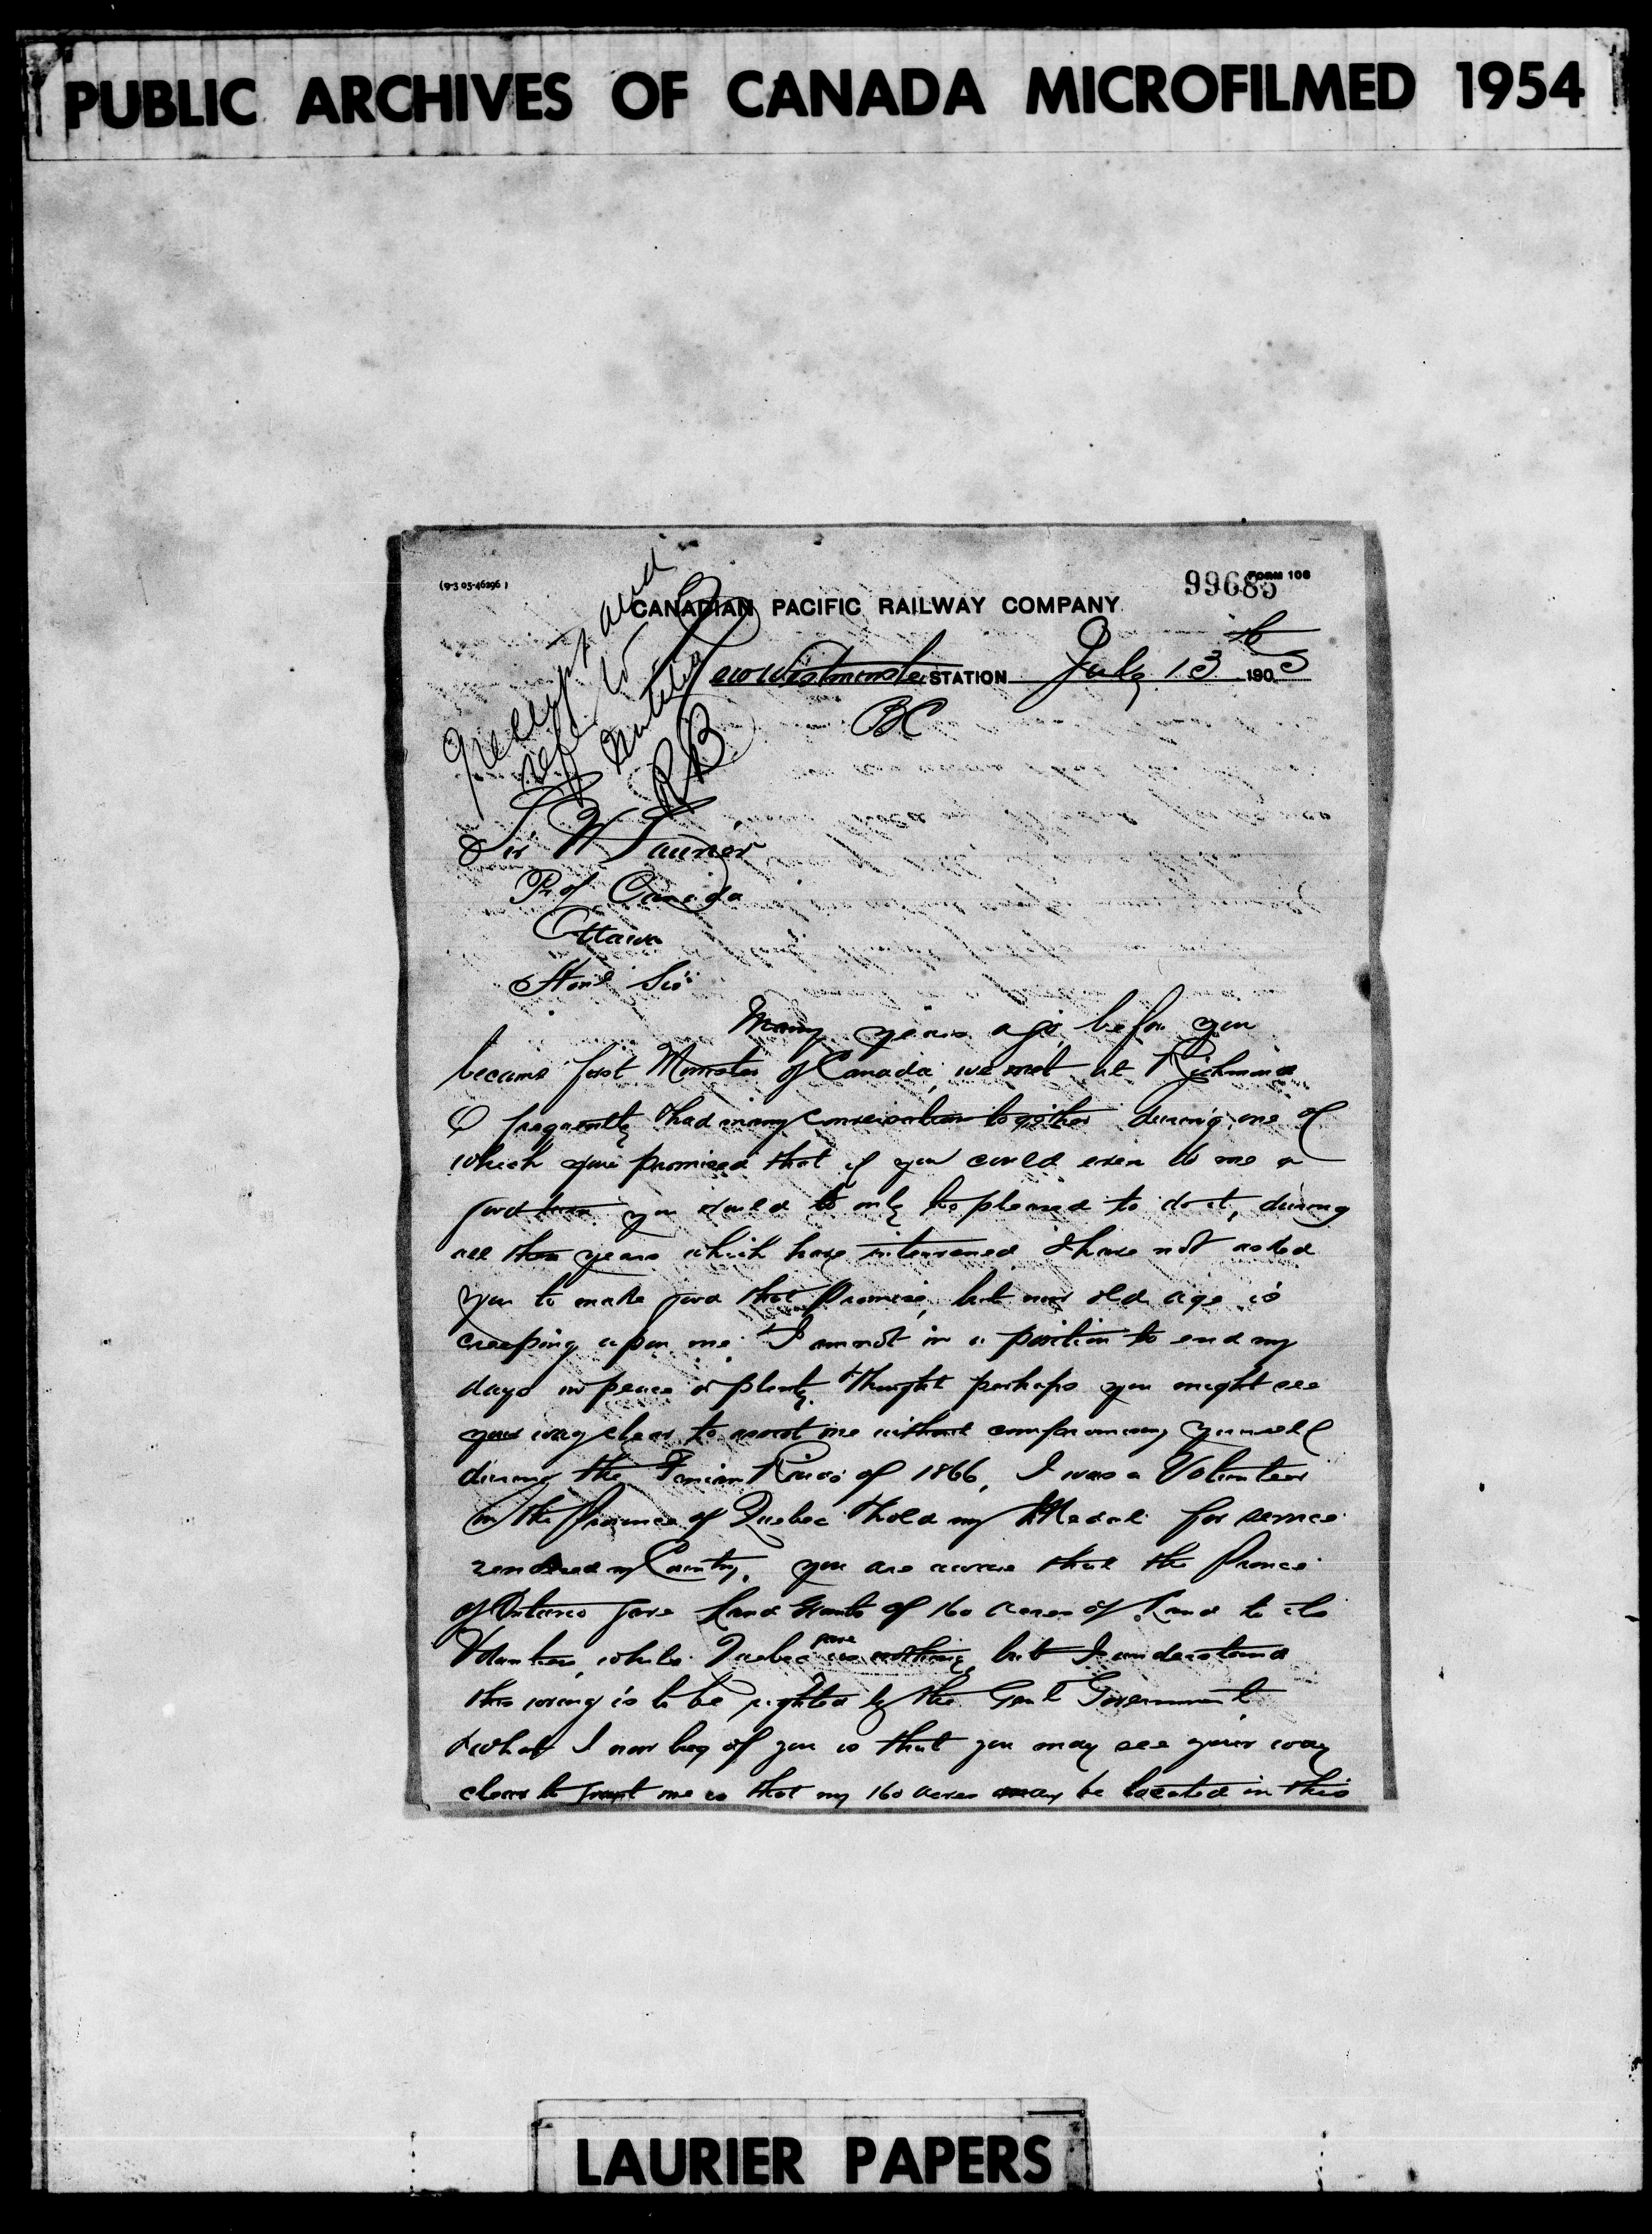 PUBLIC ARCHIVES OF CANADA MICROFILMED 1954
(9-3 05-46296)
99685
FORM 108
CANADIAN PACIFIC RAILWAY COMPANY
New Westminster STATION July 13th 1905
BC
receipt and
refer to
RB
Sir W Laurier
Pr of Canada
Ottawa
Honl Sir
Many years ago, before you
became first Minister of Canada, we met at Richmond
& frequently & had many conversation together during one of
which you promised that if you could ever do me a
good turn you would be only too pleased to do it, during
all these years which have intervened I have not asked
you to make good that Promise, but now old age is
creeping upon me & I am not in a position to end my
days in peace or plenty & thought perhaps you might see
your way clear to assist me without compromising yourself
during the Fenian Raids of 1866, I was a Volunteer
in the Province of Quebec & hold my Medal for service
rendered my Country. you are aware that the Province
of Ontario gave Land Grants of 160 acres of Land to its
Volunteers, while Quebec gave us nothing, but I understand
this wrong is to be righted by the Genl Government
& what I now beg of you is that you may see your way
clear to grant me is that my 160 acres may be located in this
LAURIER PAPERS